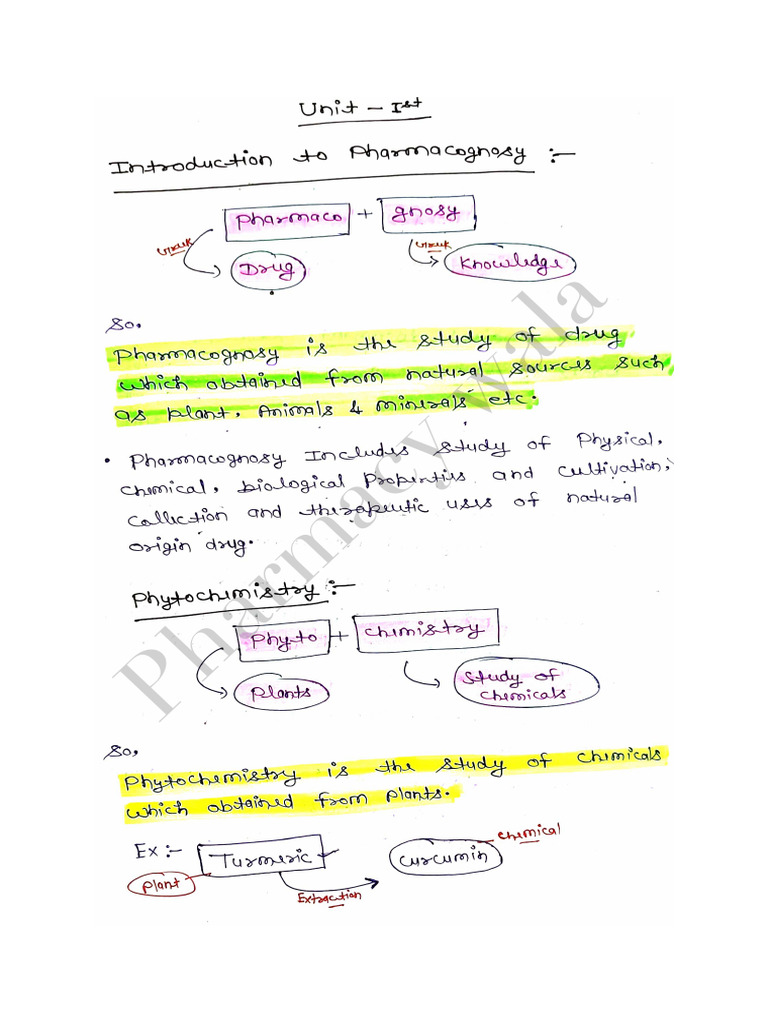 Unit - Ist
Introduction to Pharmacognosy :-
Pharmaco + gnosy
Greek Greek
Drug Knowledge
So,
Pharmacognosy is the study of drug
which obtained from natural sources such
as plant, Animals & minerals etc.
• Pharmacognosy Includes study of Physical,
chemical, biological Properties and cultivation,
collection and therapeutic uses of natural
origin drug.
Phytochemistry :-
Phyto + chemistry
Plants Study of
chemicals
So,
Phytochemistry is the study of chemicals
which obtained from Plants.
chemical
Ex :- Turmeric curcumin
Plant
Extraction
Pharmacy wala